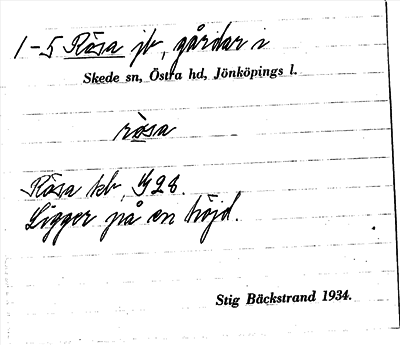 1-5 Rösa jb, gårdar i
Skede sn, Östra hd, Jönköpings l.
rösa
Rösa kb, 28.
Ligger på en höjd.
Stig Bäckstrand 1934.